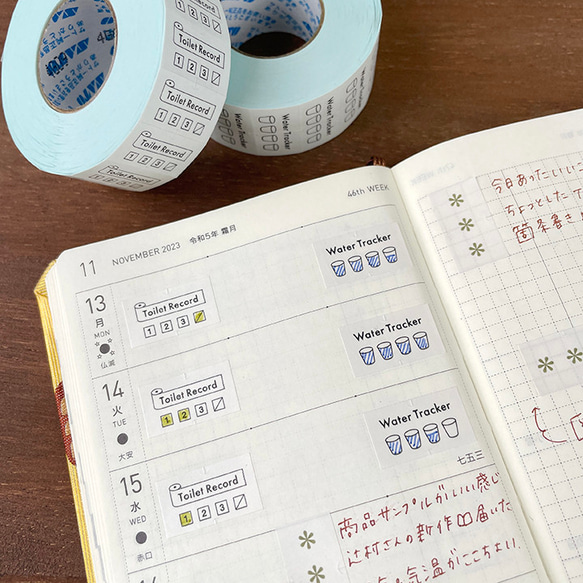 Toilet Record
1 2 3
Toilet Record
1 2 3
Toilet Record
1 2 3
Toilet Record
1 2 3
Toilet Record
Water Tracker
Water Tracker
46th WEEK
11 NOVEMBER 2023 令和5年 霜月
13
月
MON
仏滅
Toilet Record
1 2 3
Water Tracker
14
火
TUE
大安
Toilet Record
1 2 3
Water Tracker
15
水
WED
赤口
Toilet Record
1 2 3
Water Tracker
七五三
商品サンプルがいい感じ
辻村さんの新作届いた
気温がここちよい.
今日あったいい
ちょっとした
箇条書き